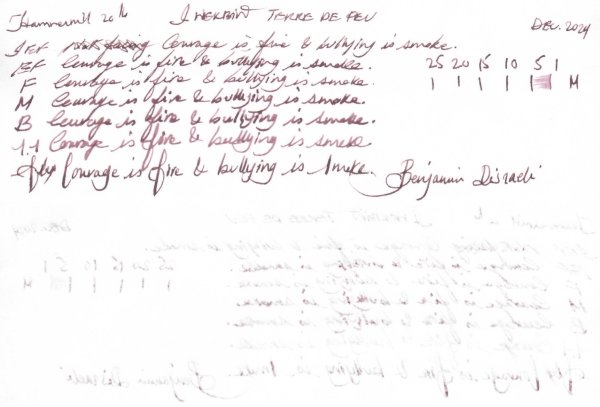 Hammermill 20 lb J HERBIN TERRE DE FEU DEC. 2024
IEF Courage is fire & bullying is smoke.
EF Courage is fire & bullying is smoke. 25 20 15 10 5 1
F Courage is fire & bullying is smoke. M
M Courage is fire & bullying is smoke.
B Courage is fire & bullying is smoke.
1.1 Courage is fire & bullying is smoke
Courage is fire & bullying is smoke. Benjamin Disraeli